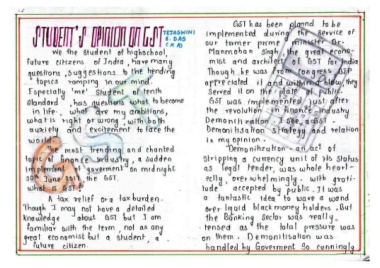 STUDENT'S OPINION ON GST
TEJASWINI
S. DAS
We the student of highschool,
future citizens of India, have many
questions, suggestions to the trending
topics romping in our mind.
Especially 'me' student of tenth
standard, has questions, what to become
in life, what are my ambitions,
what is right or wrong, with both
anxiety and excitement to face the
world.
The most trending and chanted
topic in finance industry, a sudden
implement by government on midnight
30th June of the GST.
What
A tax relief or a tax burden.
Though I may not have a detailed
knowledge about GST but I am
familiar with the term, not as any
great economist but a student, a
future citizen.
GST has been planned to be
implemented during the service of
our former prime minister Dr.
Manmohan Singh the great econo-
mist and architect of GST for India
Though he was from congress, BJP
appreciated and without a blow they
served it on the plate of public.
GST was implemented just after
the revolution in finance industry
Demonitisation. I see a GST
Demonitisation strategy and relation
is my opinion.
Demonitisation - an act of
stripping a currency unit of its status
as legal tender, was whole hear-
tedly, over whelmingly, with grati-
tude accepted by public. It was
a fantastic idea to wave a wand
over liquid black money holders. But
the Banking sector was really
tensed as the total pressure was
on them. Demonitisation was
handled by Goverment so cunningly